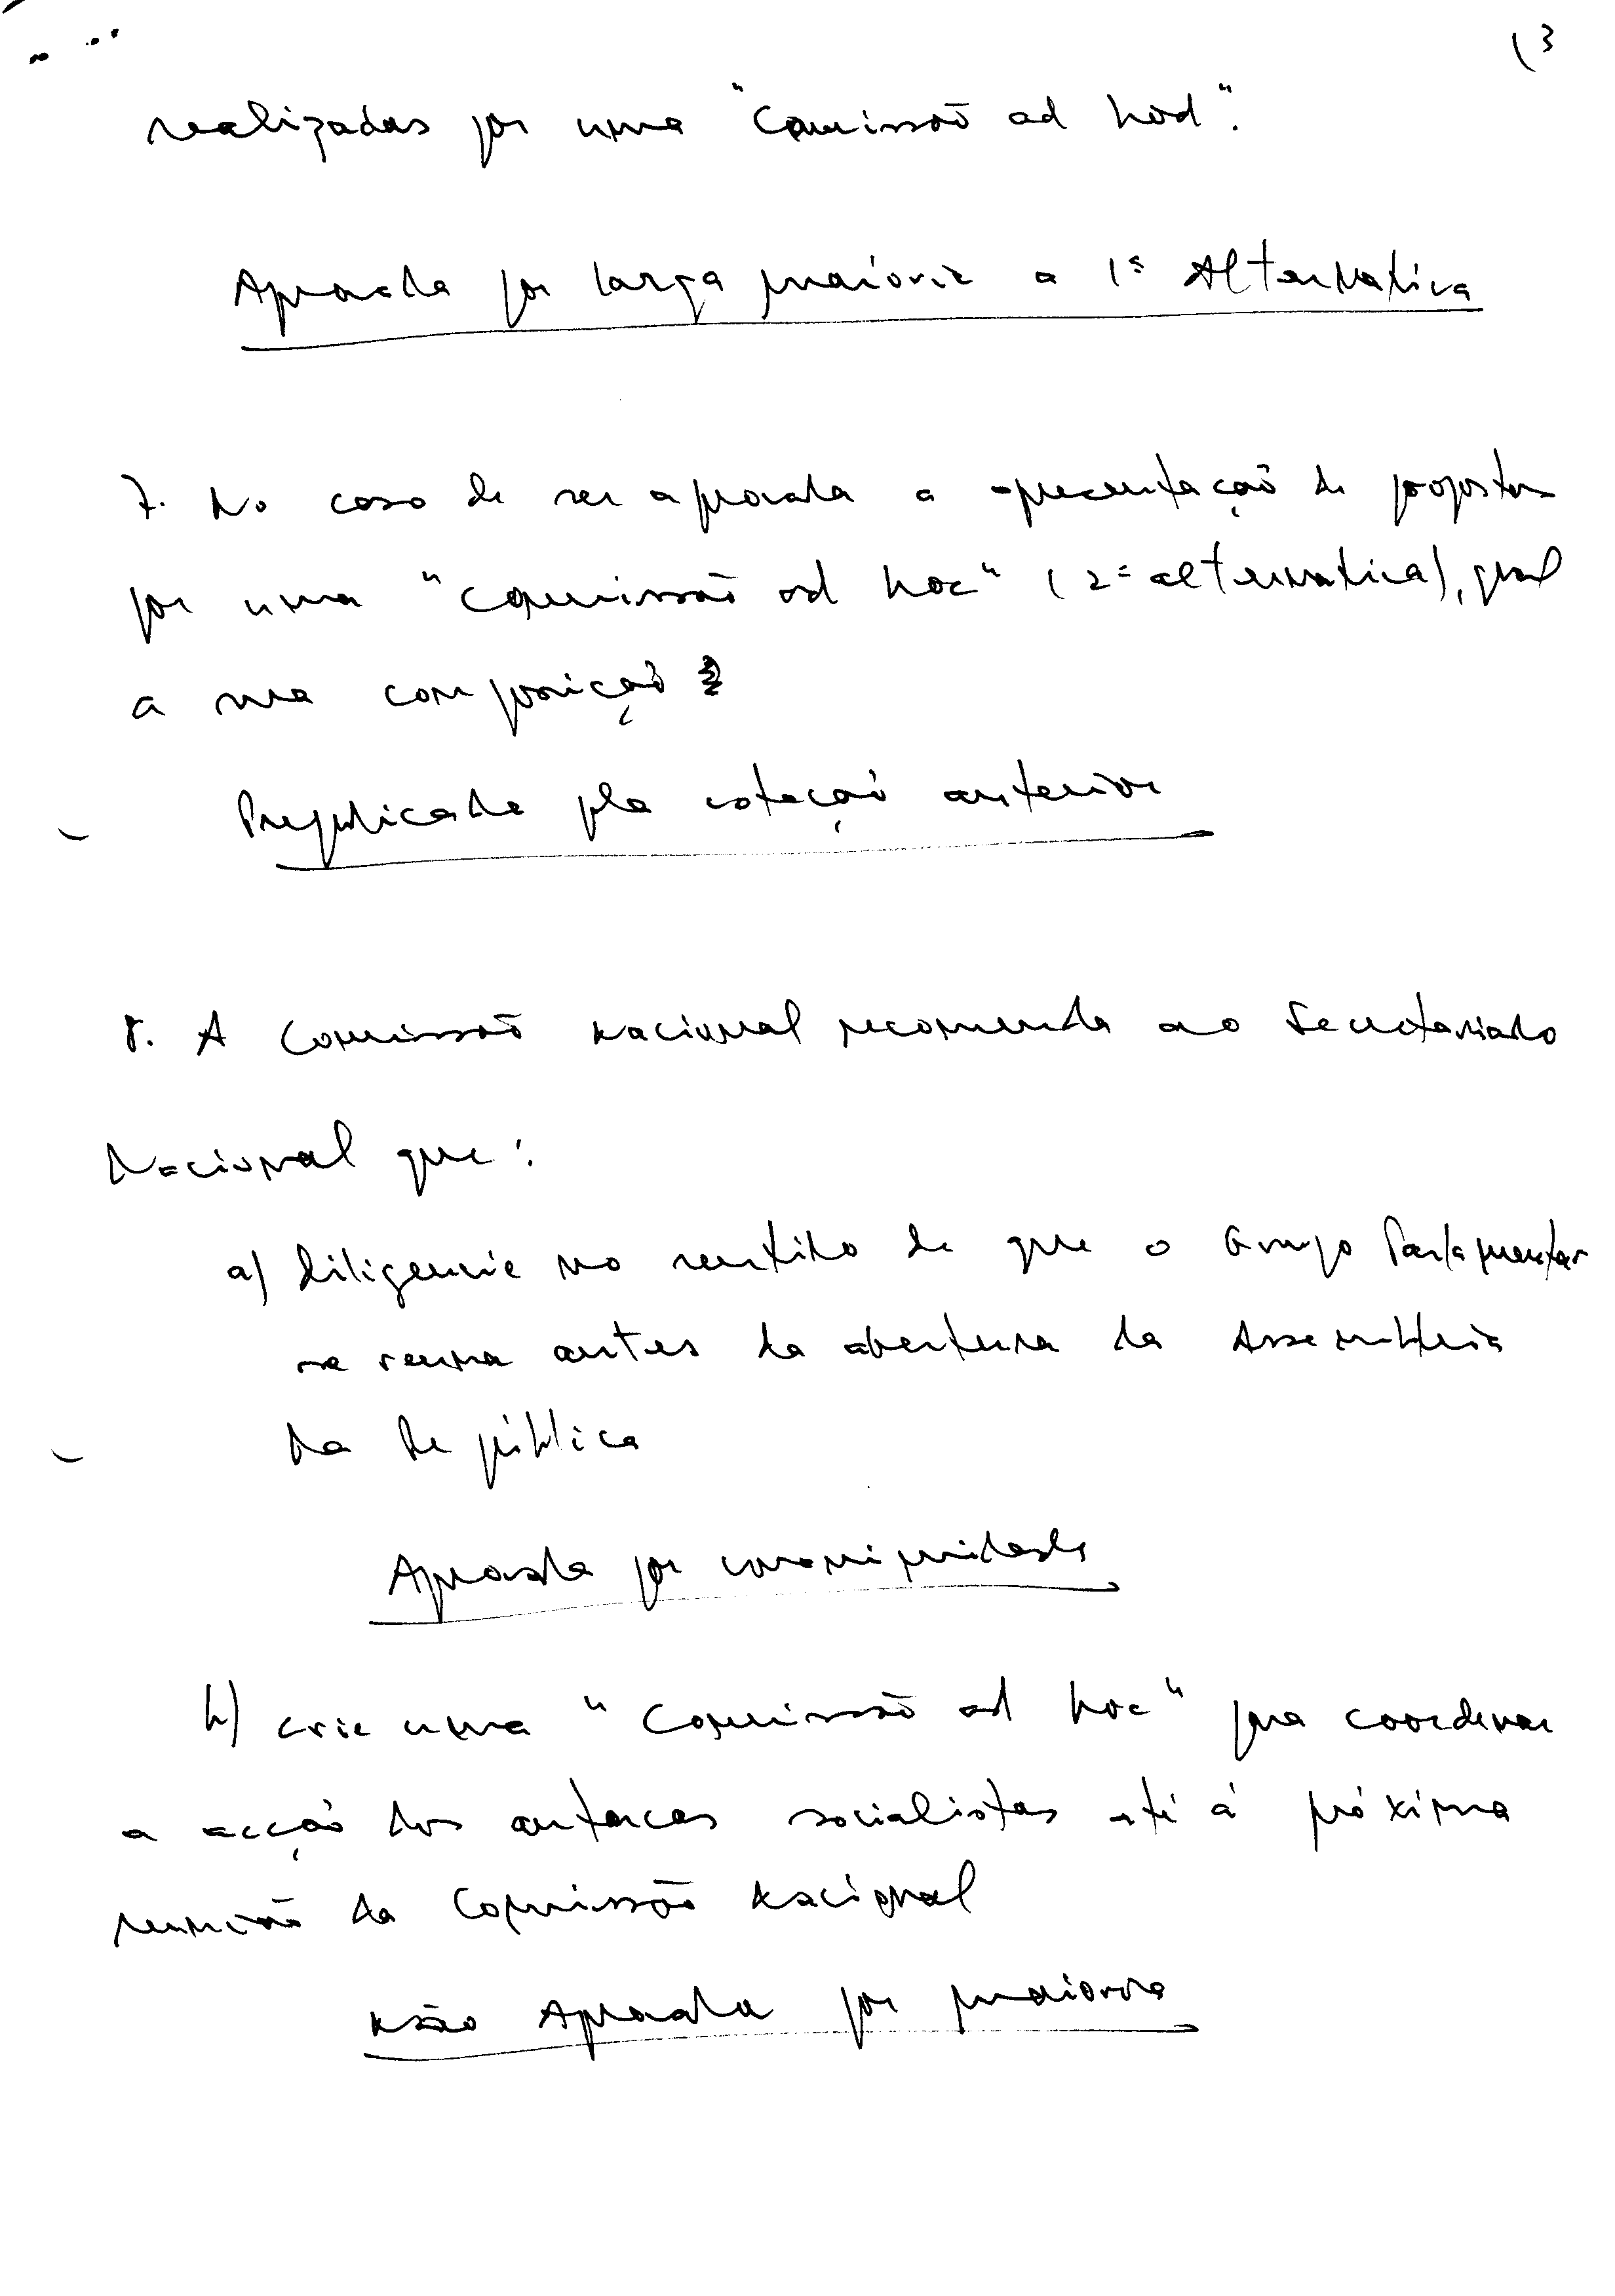 (3
realizadas por uma "Comissão ad hod".
Aprovada por larga maioria a 1ª Alternativa
7. No caso de ser aprovada a apresentação de propostas
por uma "Comissão ad hoc" (2ª alternativa), qual
a sua composição?
Prejudicada pela votação anterior
8. A Comissão Nacional recomenda ao Secretariado
Nacional que:
a) diligencie no sentido de que o Grupo Parlamentar
se reuna antes da abertura da Assembleia
da República
Aprovada por unanimidade
b) crie uma "Comissão ad hoc" para coordenar
a acção dos autarcas socialistas até á próxima
reunião da Comissão Nacional
Não Aprovada por maioria